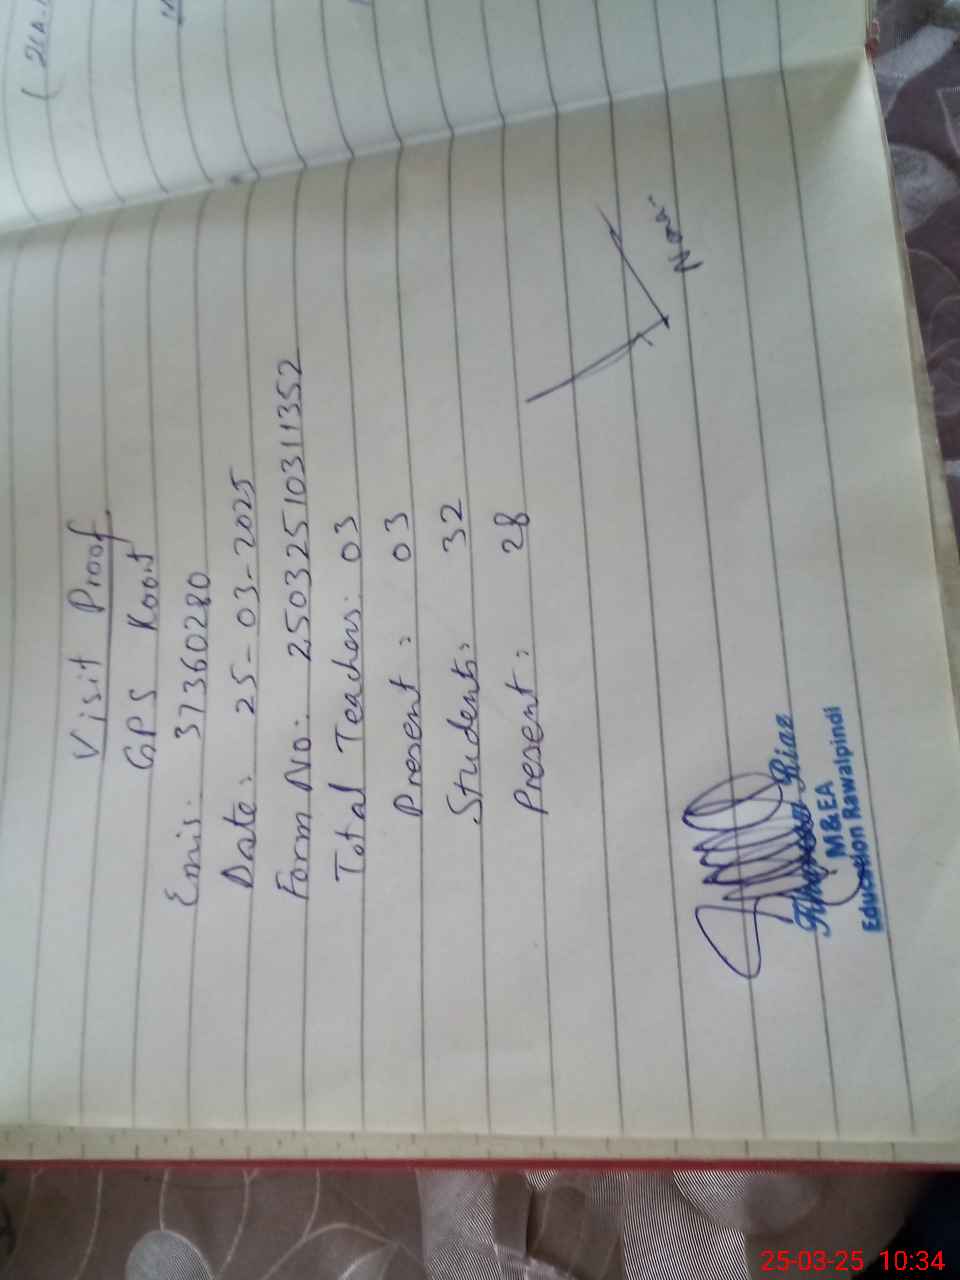 Visit Proof
GPS Koont
Emis: 37360280
Date: 25-03-2025
Form No: 250325103111352
Total Teachers: 03
Present: 03
Students: 32
Present: 28
Riaz
M&EA
Education Rawalpindi
25-03-25 10:34